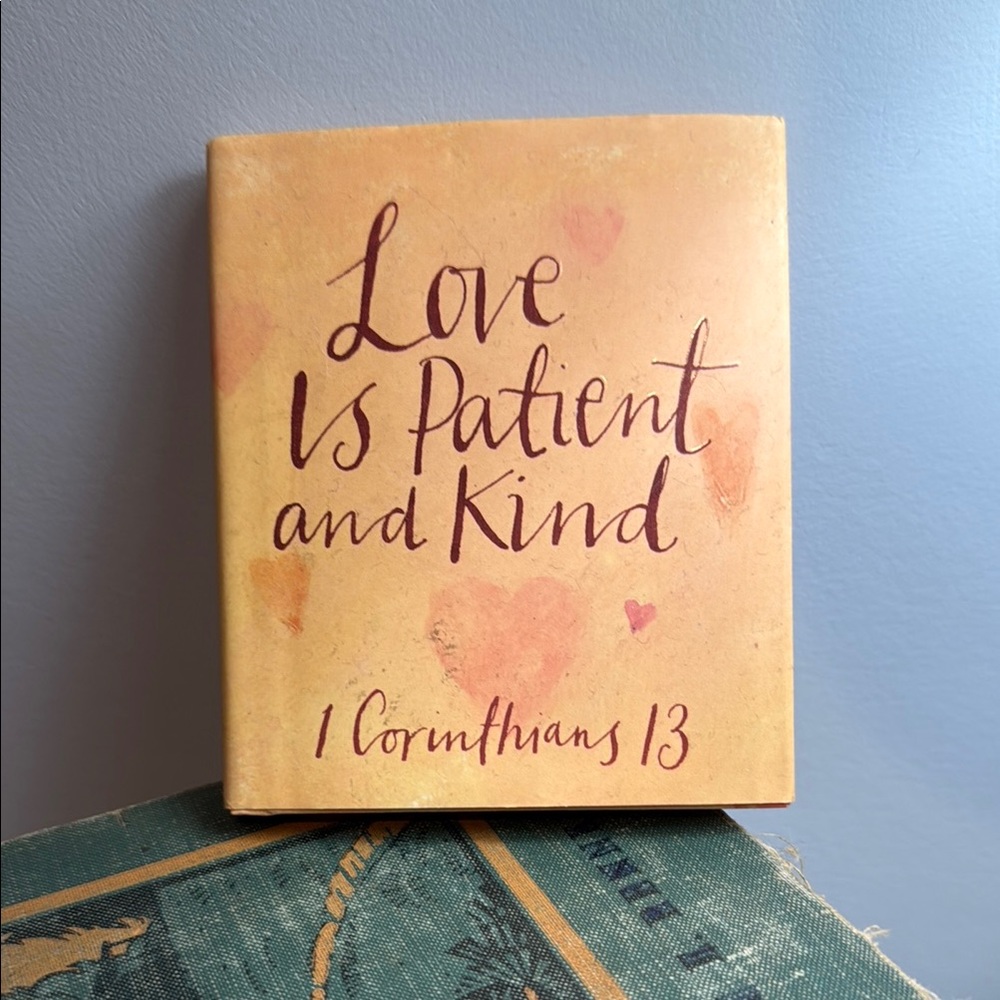 Love
Is Patient
and Kind
1 Corinthians 13